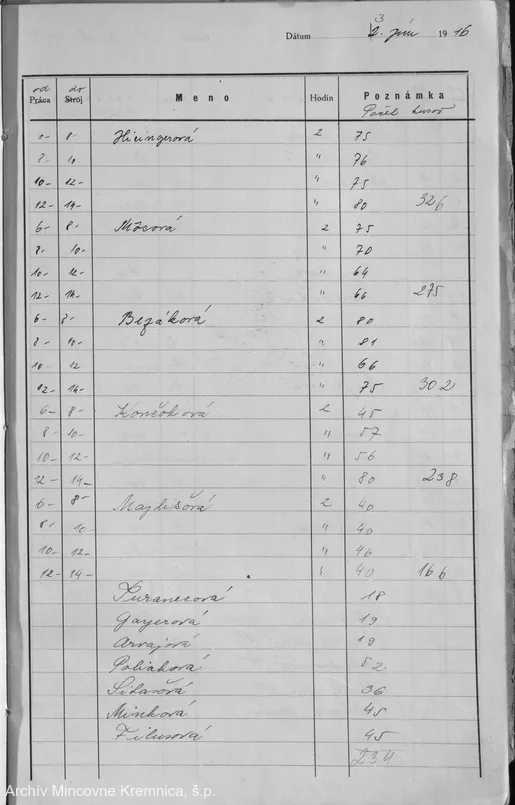 Dátum 3. júni 1946
od do
Práca Stroj Meno Hodín Poznámka
Počet kusov
6- 8- Hicingerová 2 75
8- 10 " 76
10- 12- " 75
12- 14- " 80 326
6- 8- Môcová 2 75
8- 10- " 70
10- 12- " 64
12- 14- " 66 275
6- 8- Bezáková 2 80
8- 10- " 81
10- 12 " 66
12- 14- " 75 302
6- 8- Končoková 2 45
8- 10- " 57
10- 12- " 56
12- 14- " 80 238
6- 8- Majlišová 2 40
8- 10- " 40
10- 12- " 46
12- 14- " 40 166
18
Gayerová 19
Arvajová 19
Poliaková 52
36
Minková 45
Filusová 45
234
Archív Mincovne Kremnica, š.p.